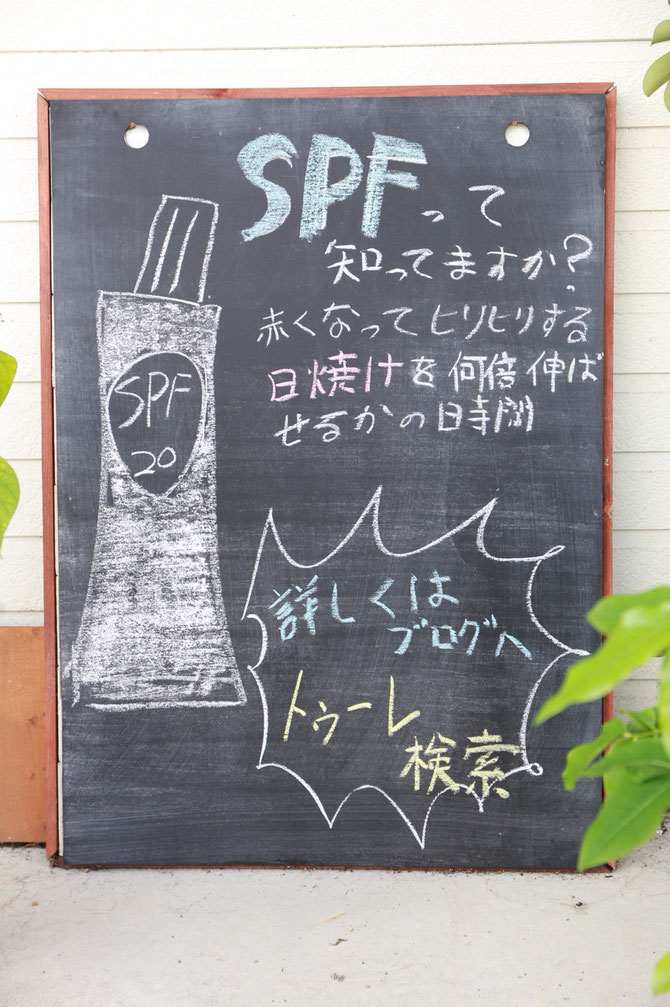 SPFって
知ってますか?
赤くなってヒリヒリする
日焼けを何倍伸ば
せるかの時間
SPF
20
詳しくは
ブログへ
トゥーレ
検索